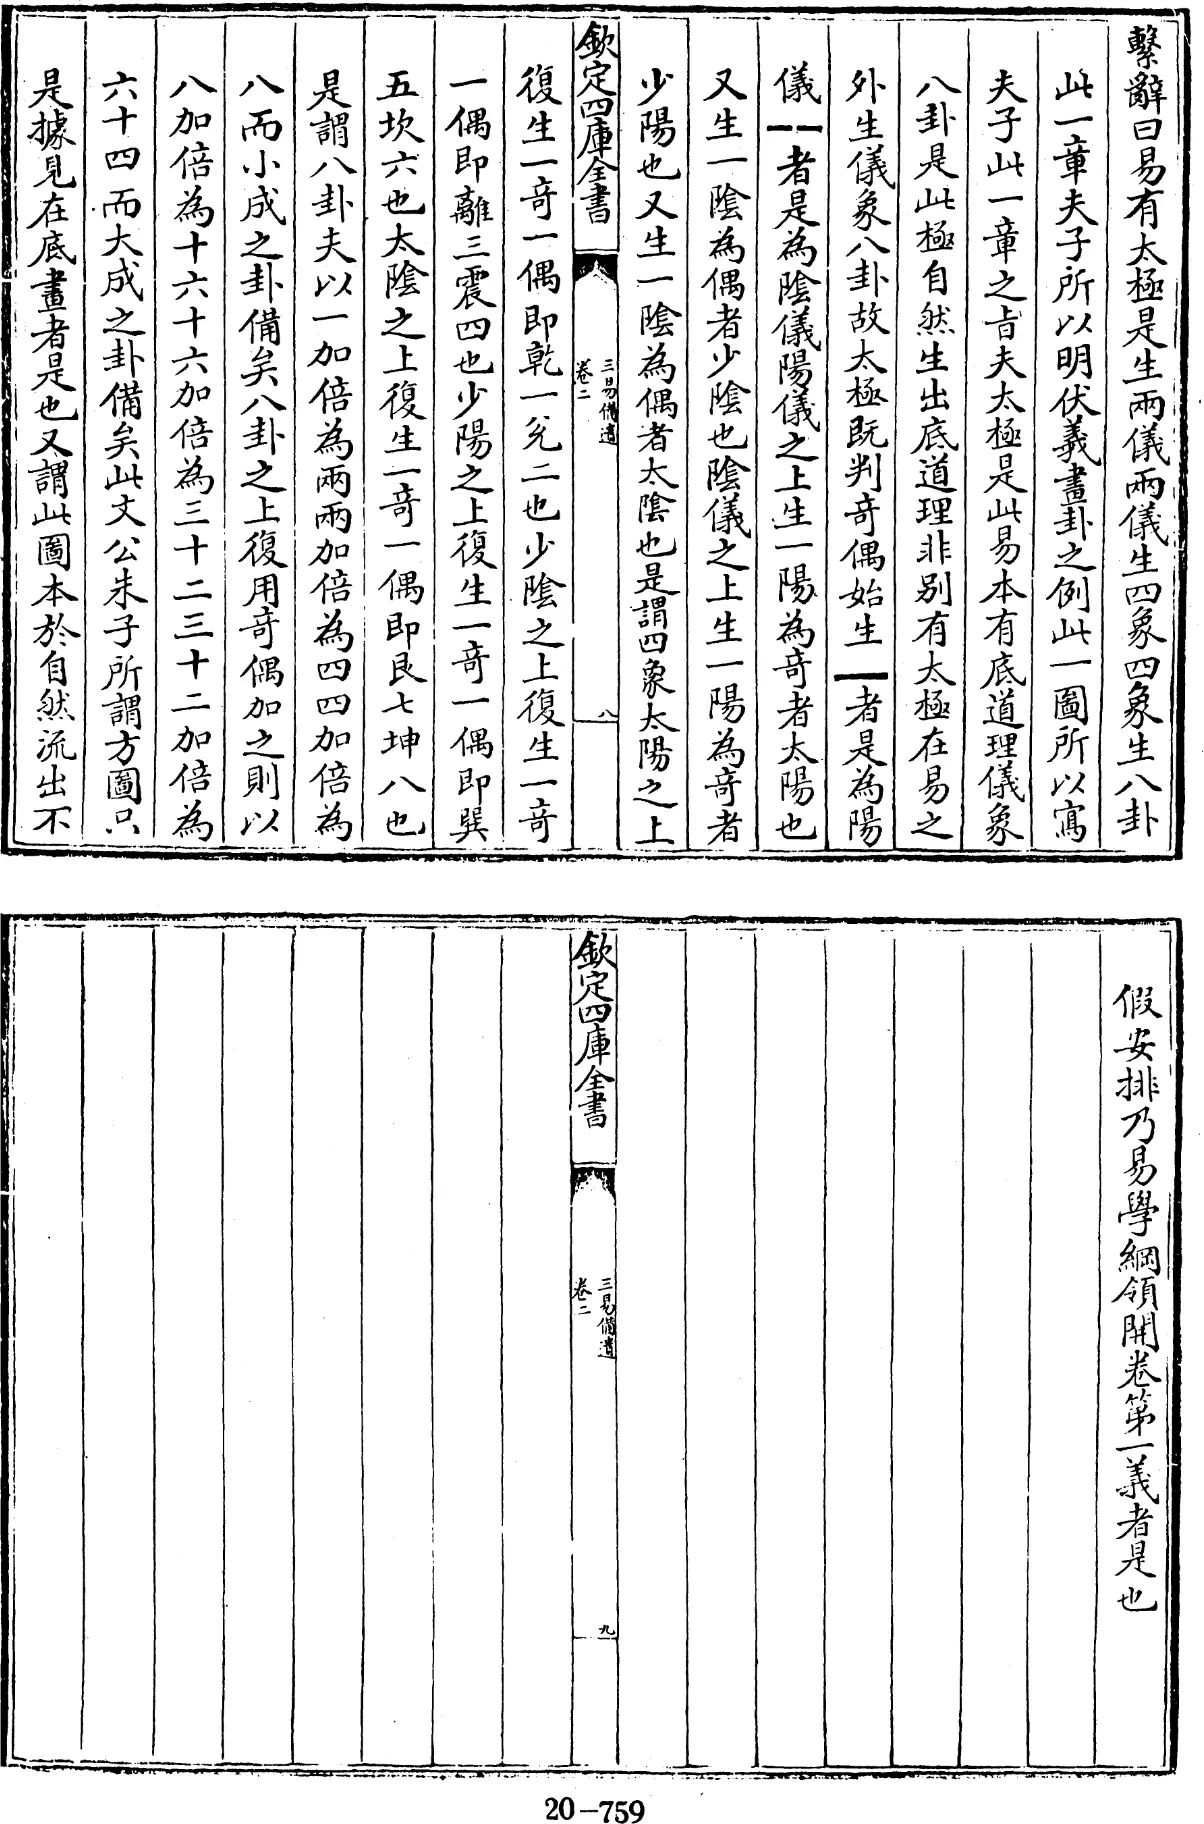 繫辭曰易有太極是生兩儀兩儀生四象四象生八卦
此一章夫子所以明伏羲畫卦之例此一圖所以寓
夫子此一章之旨夫太極是此易本有底道理儀象
八卦是此極自然生出底道理非别有太極在易之
外生儀象八卦故太極既判奇偶始生⚊者是為陽
儀⚋者是為陰儀陽儀之上生一陽為奇者太陽也
又生一陰為偶者少陰也陰儀之上生一陽為奇者
少陽也又生一陰為偶者太陰也是謂四象太陽之上
欽定四庫全書
三易備遺
卷二
八
復生一奇一偶即乾一兊二也少陰之上復生一奇
一偶即離三震四也少陽之上復生一奇一偶即巽
五坎六也太陰之上復生一奇一偶即艮七坤八也
是謂八卦夫以一加倍為兩兩加倍為四四加倍為
八而小成之卦備矣八卦之上復用奇偶加之則以
八加倍為十六十六加倍為三十二三十二加倍為
六十四而大成之卦備矣此文公朱子所謂方圖只
是據見在底畫者是也又謂此圖本於自然流出不
假安排乃易學綱領開卷第一義者是也
欽定四庫全書
三易備遺
卷二
九
20-759